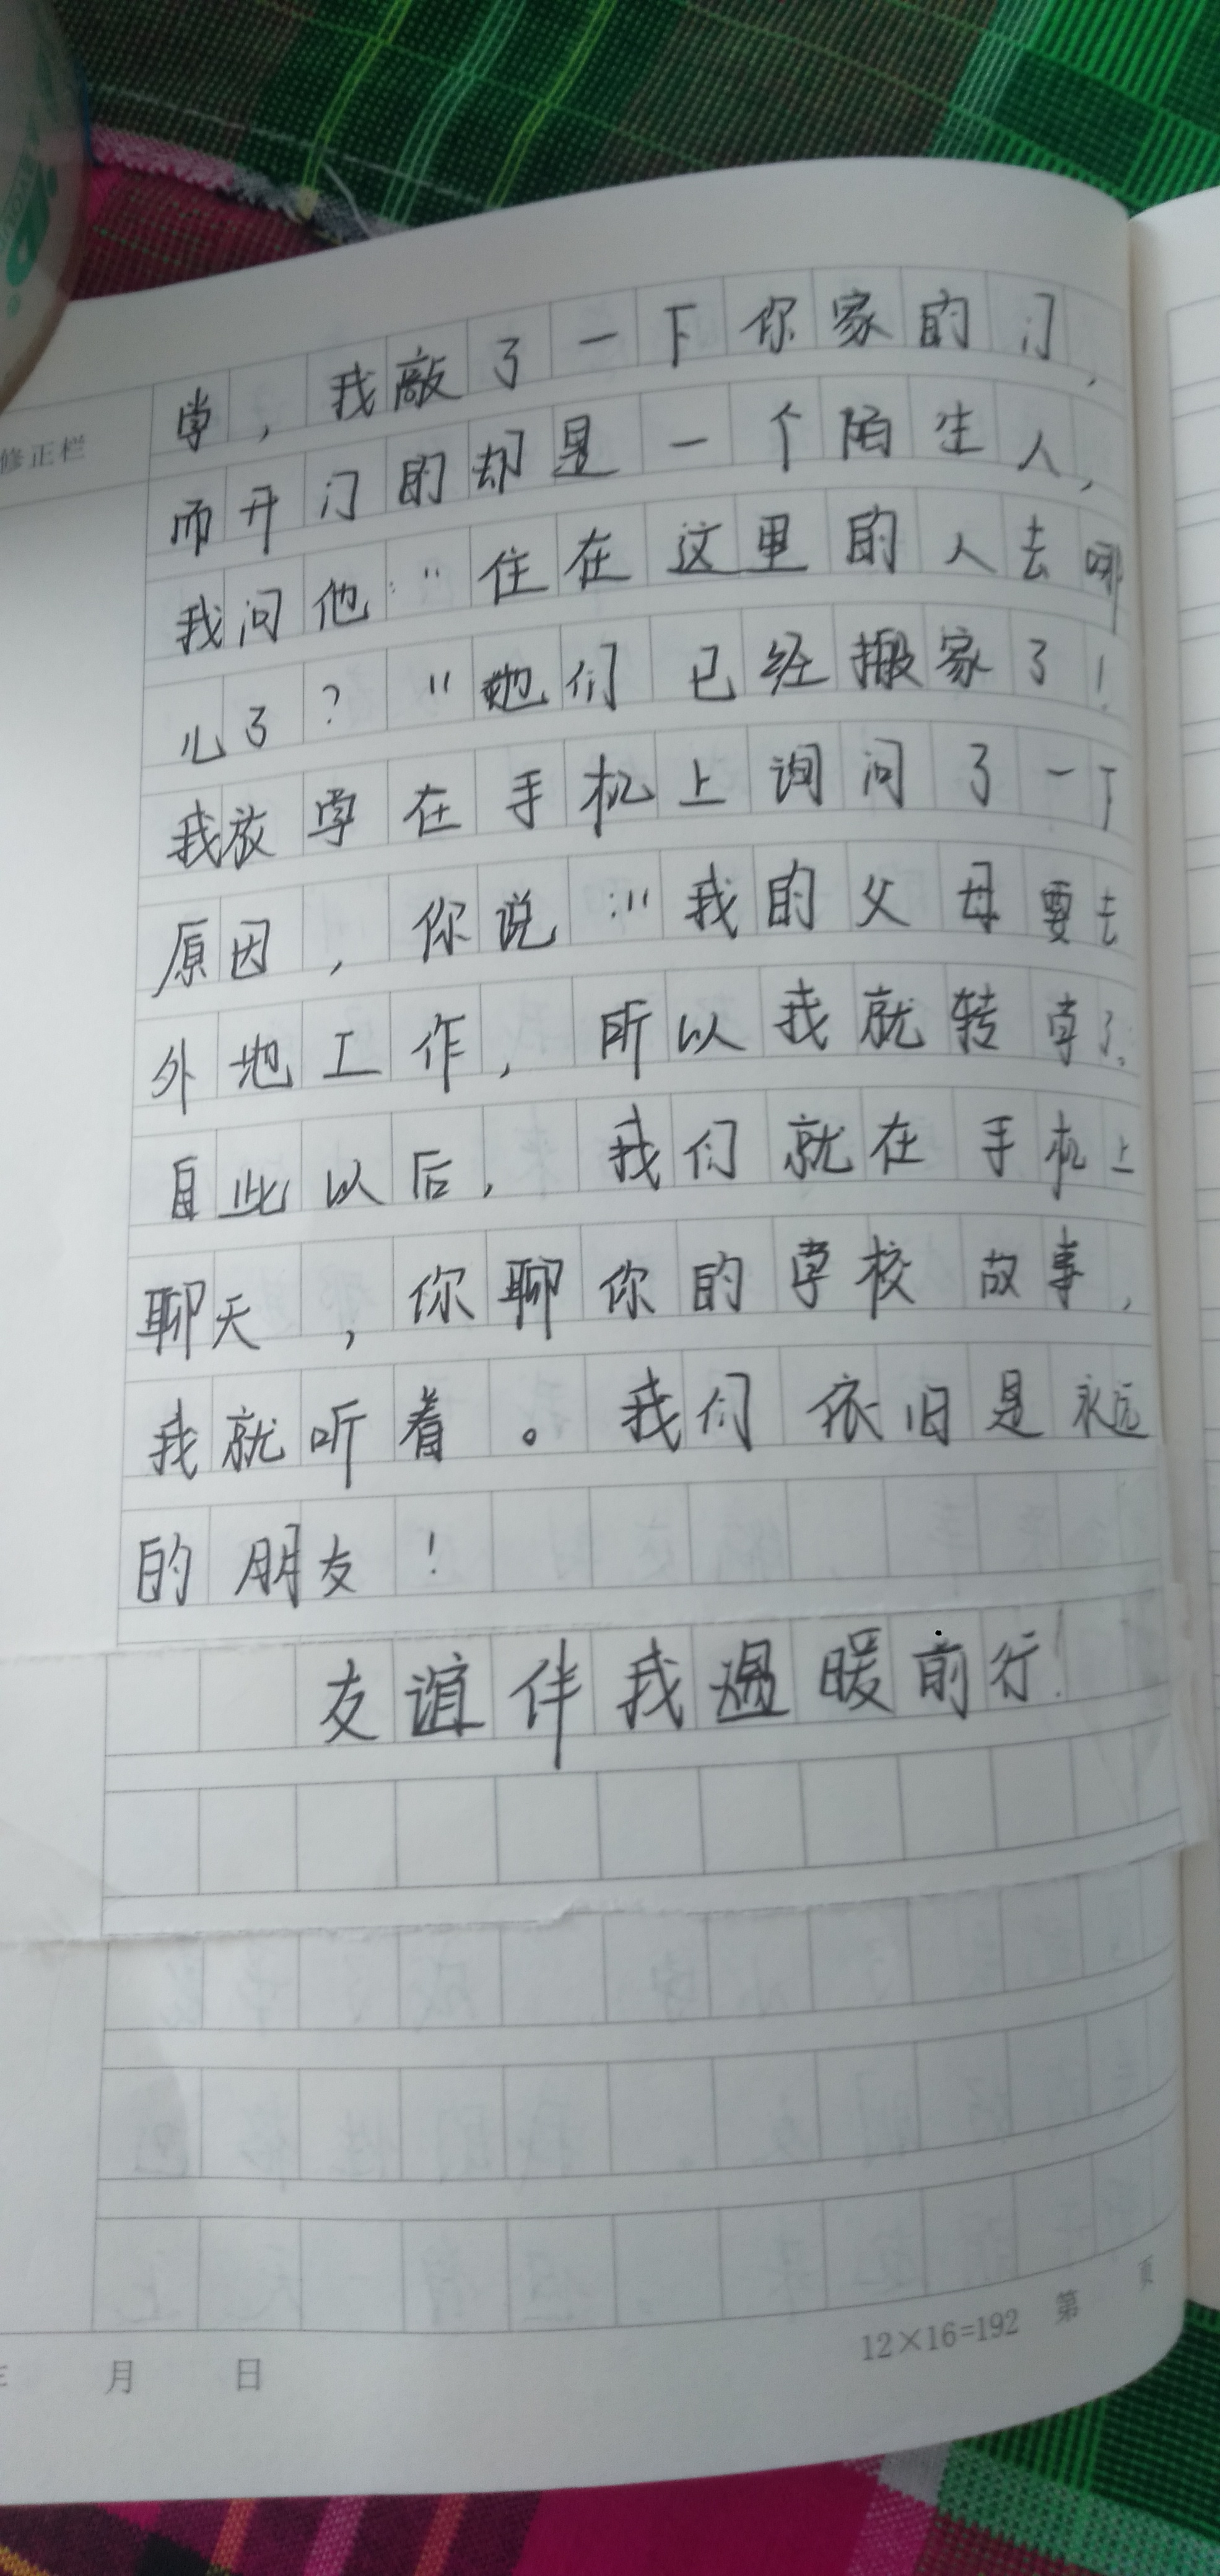 学，我敲了一下你家的门，
修正栏
而开门的却是一个陌生人，
我问他："住在这里的人去哪
儿了？"她们已经搬家了！
我放学在手机上询问了一下
原因，你说："我的父母要去
外地工作，所以我就转学了。
自此以后，我们就在手机上
聊天，你聊你的学校故事，
我就听着。我们依旧是永远
的朋友！
友谊伴我温暖前行！
12×16=192 第 页
年 月 日